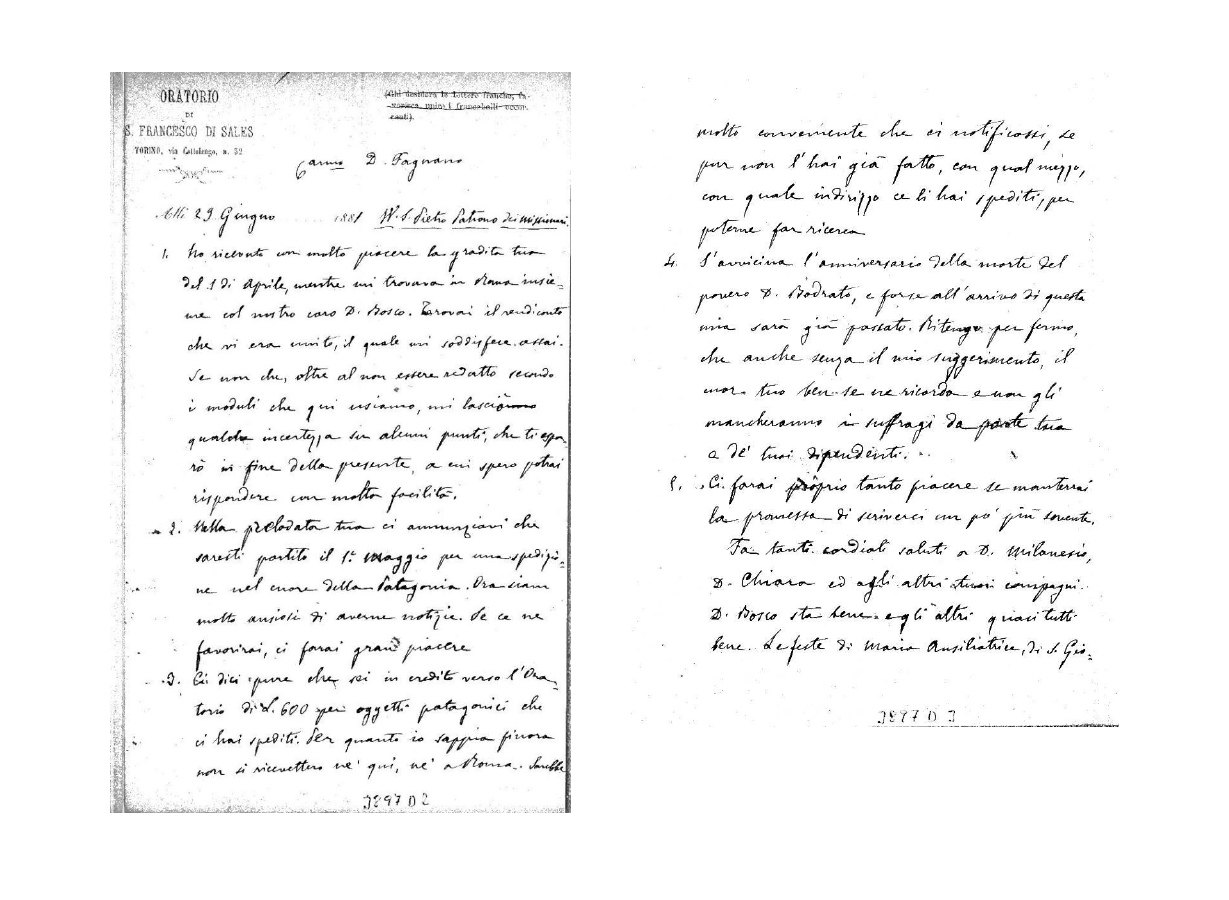 ORATORIO
DI
S. FRANCESCO DI SALES
TORINO, via Cottolengo, n. 32
(Chi desidera le lettere franche, fa-
vorisca unire i francobolli occor-
renti).
Carmo D. Fagnano
Alli 29 Giugno 1881 W. S. Pietro Patrono dei missionari.
1. Ho ricevuto con molto piacere la gradita tua
del 1 di Aprile, mentre mi trovava in Roma insie-
me col nostro caro D. Bosco. Trovai il rendiconto
che vi era unito, il quale mi soddisfece assai.
Se non che, oltre al non essere redatto secondo
i moduli che qui usiamo, mi lasciò
qualche incertezza su alcuni punti, che ti espor
rò in fine della presente, a cui spero potrai
rispondere con molta facilità.
2. Nella prelodata tua ci annunziavi che
saresti partito il 1º Maggio per una spedizio-
ne nel cuore della Patagonia. Ora siam
molto ansiosi di averne notizie. Se ce ne
favorirai, ci farai gran piacere
3. Ci dici pure che sei in credito verso l'Ora
torio di L. 600 per oggetti patagonici che
ci hai spediti. Per quanto io sappia finora
non si ricevettero nè qui, nè a Roma. Sarebbe
3897 D 2
molto conveniente che ci notificassi, se
pur non l'hai già fatto, con qual mezzo,
con quale indirizzo ce li hai spediti, per
poterne far ricerca
4. S'avvicina l'anniversario della morte del
povero D. Bodrato, e forse all'arrivo di questa
mia sarà già passato. Ritengo per fermo,
che anche senza il mio suggerimento, il
cuor tuo ben se ne ricorda e non gli
mancheranno i suffragi da parte tua
e de' tuoi dipendenti.
5. Ci farai proprio tanto piacere se manterrai
la promessa di scriverci un po' più sovente.
Fa tanti cordiali saluti a D. Milanesio,
D. Chiara ed agli altri tuoi compagni.
D. Bosco sta bene e gli altri quasi tutti
bene. Le feste di Maria Ausiliatrice, di S. Gio-
3897 D 3